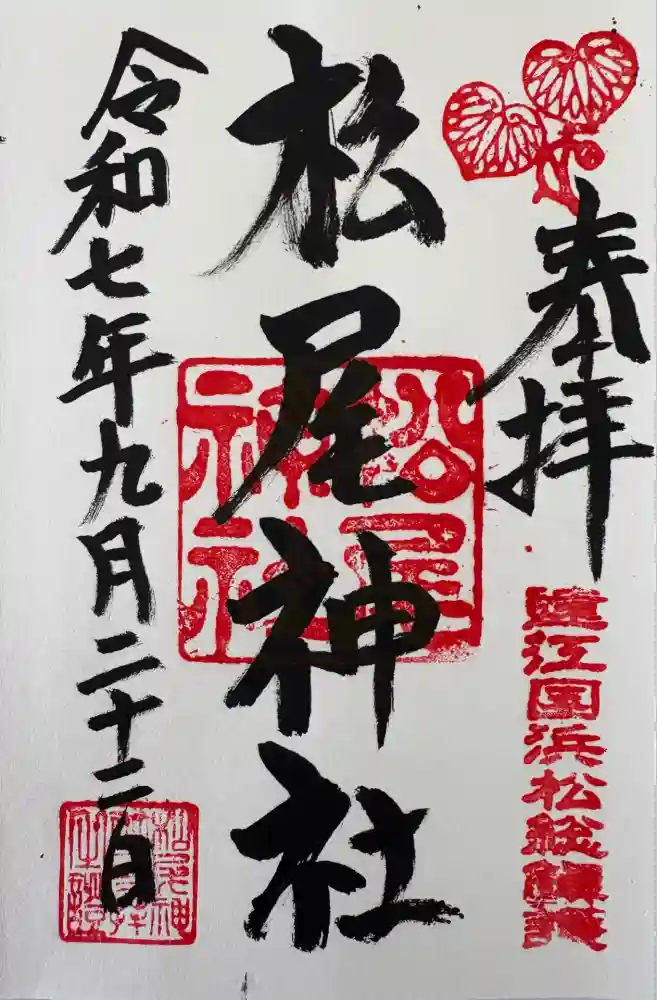 奉拝
遠江国浜松総鎮護
松尾神社
松尾
神社
令和七年九月二十二日
松尾神